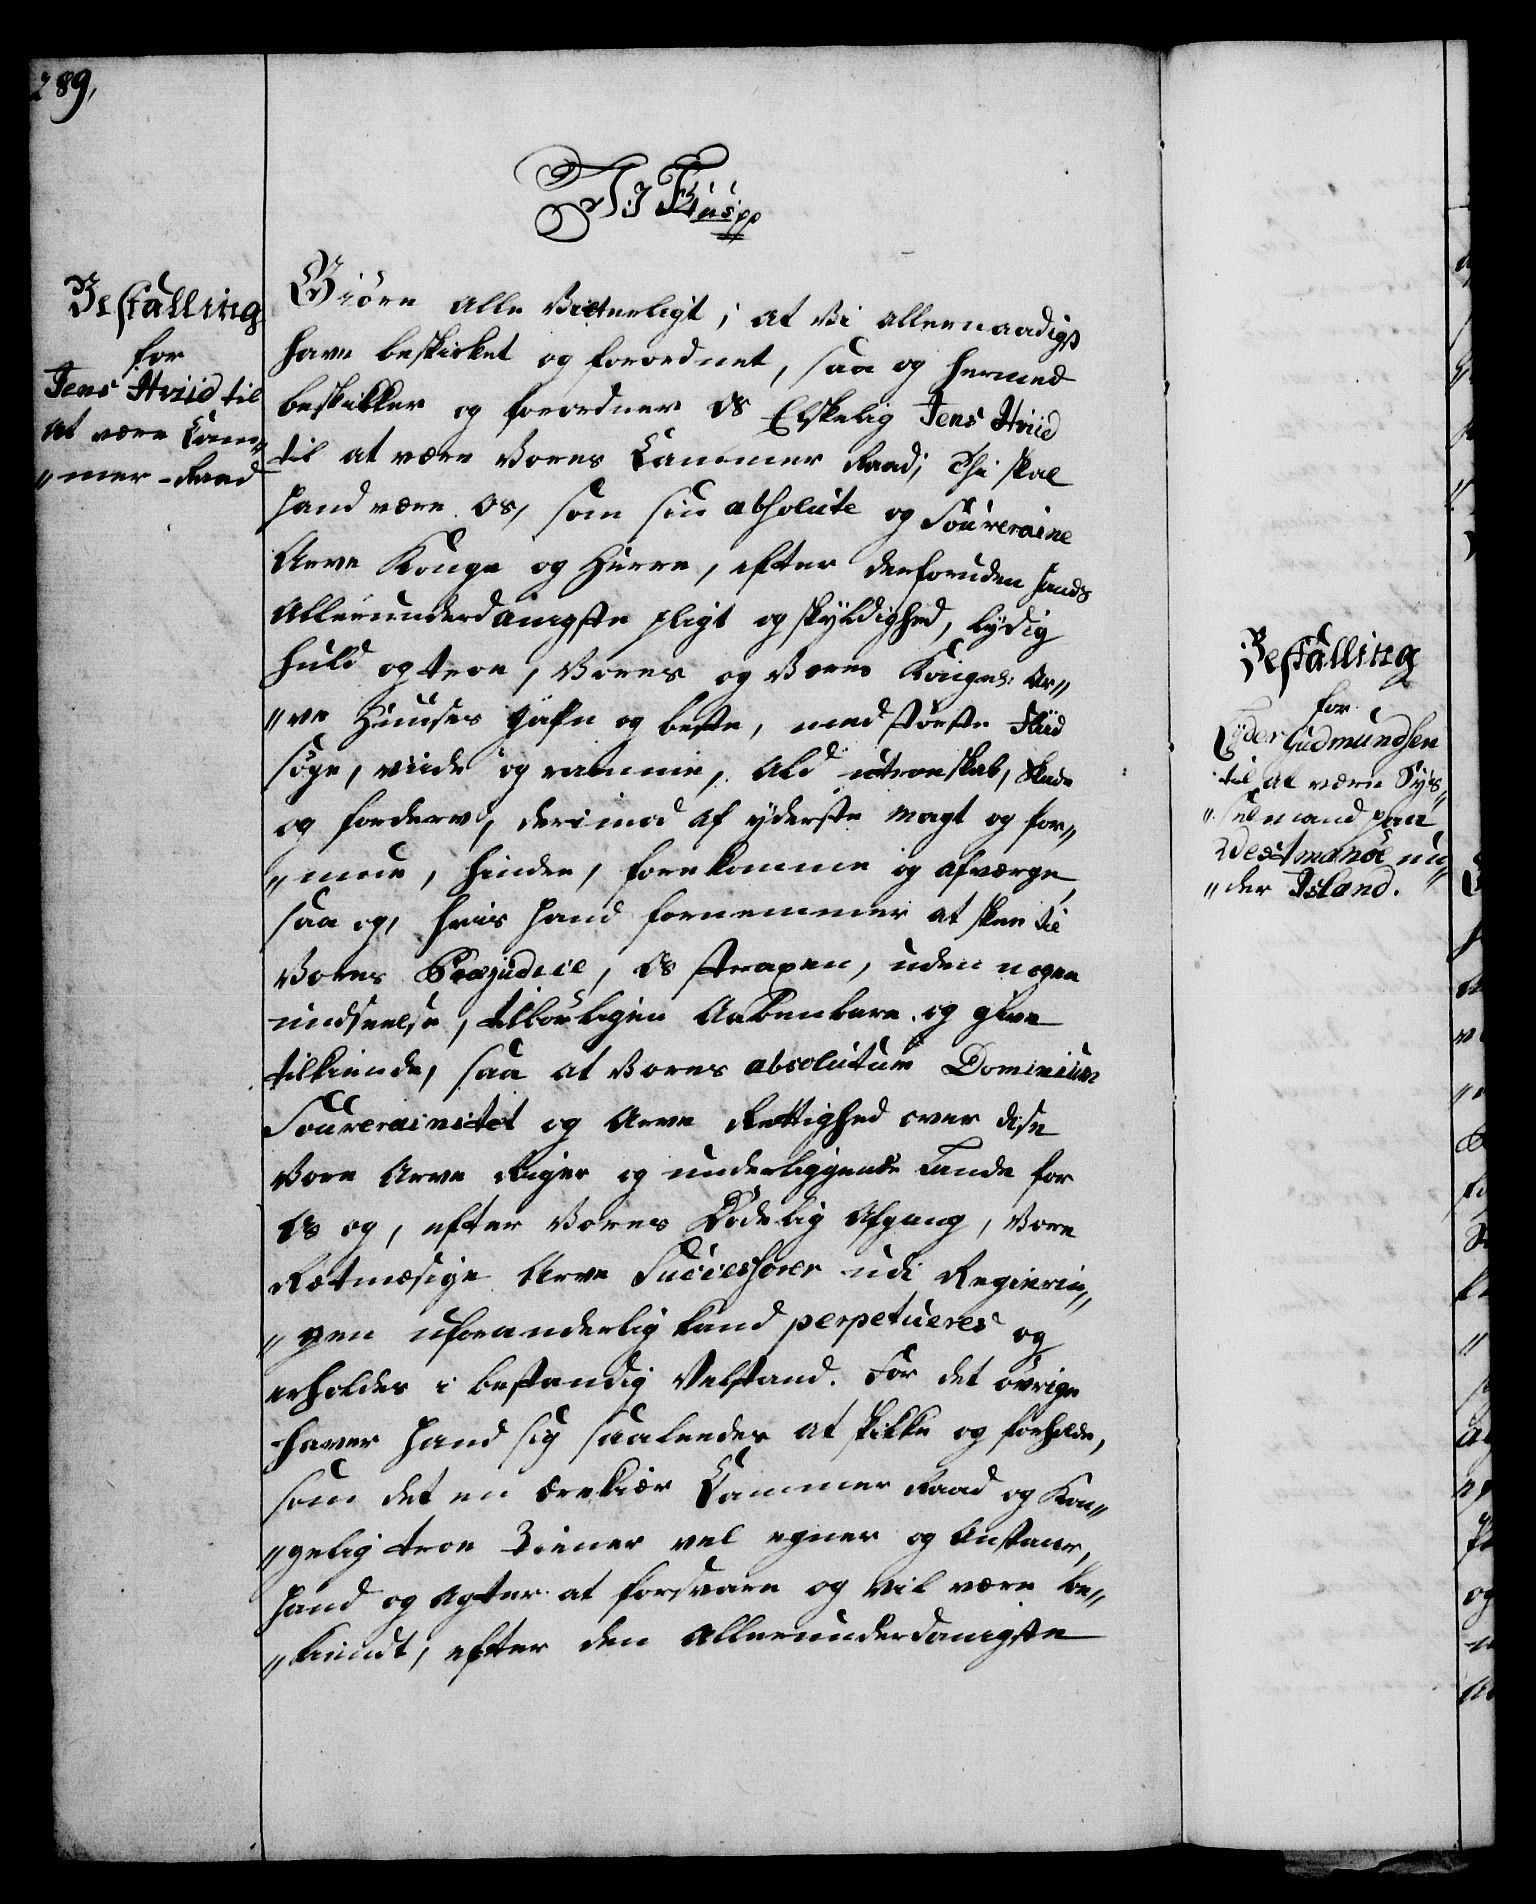 289,
Bestalling
for
Jens Hviid til
at være Cam„
„mer-Raad
Giöre alle Vitterligt, at Vi allernaadigst
have beskikket og forordnet, saa og hermed
beskikker og forordner Os Elskelig Jens Hviid
til at være Vores Cammer Raad; Thi skal
hand være Os, som sin absolute og Souveraine
Arve Konge og Herre, efter derforuden hands
Allerunderdanigste pligt og skyldighed, lydig
huld og troe, Vores og Vores Kongel: Ar„
„ve Huuses gafn og beste, med störste Fliid
söge, viide og ramme, Ald utroeskab, Skade
og forderv, derimod af yderste magt og for„
„mue, hindre, forekomme og afværge,
saa og, hvis hand fornemmer at skee til
Vores Præjudice, Os straxen, uden nogen
undseelse, tilbörligen Aabenbare og give
tilkiende, saa at Vores absolutum Dominium
Souverainitet og Arve Rettighed over disse
Vore Arve Riger og underliggende Lande for
Os og, efter Vores Dödelig Afgang, Vore
Rætmæsige Arve Successorer udi Regierin„
„gen uforanderlig kand perpetueres og
erholdes i bestandig Velstand. For det övrige
haver hand sig saaledes at skikke og forholde,
som det en ærekiær Cammer Raad og Kon„
„gelig troe Tiener vel egner og Anstaar,
hand og agter at forsvare og vil være be„
„kiendt, efter den Allerunderdanigste
Bestalling
for
Gudmundsen
til at være Sys„
„selmand paa
Westmanöe un„
„der Island.